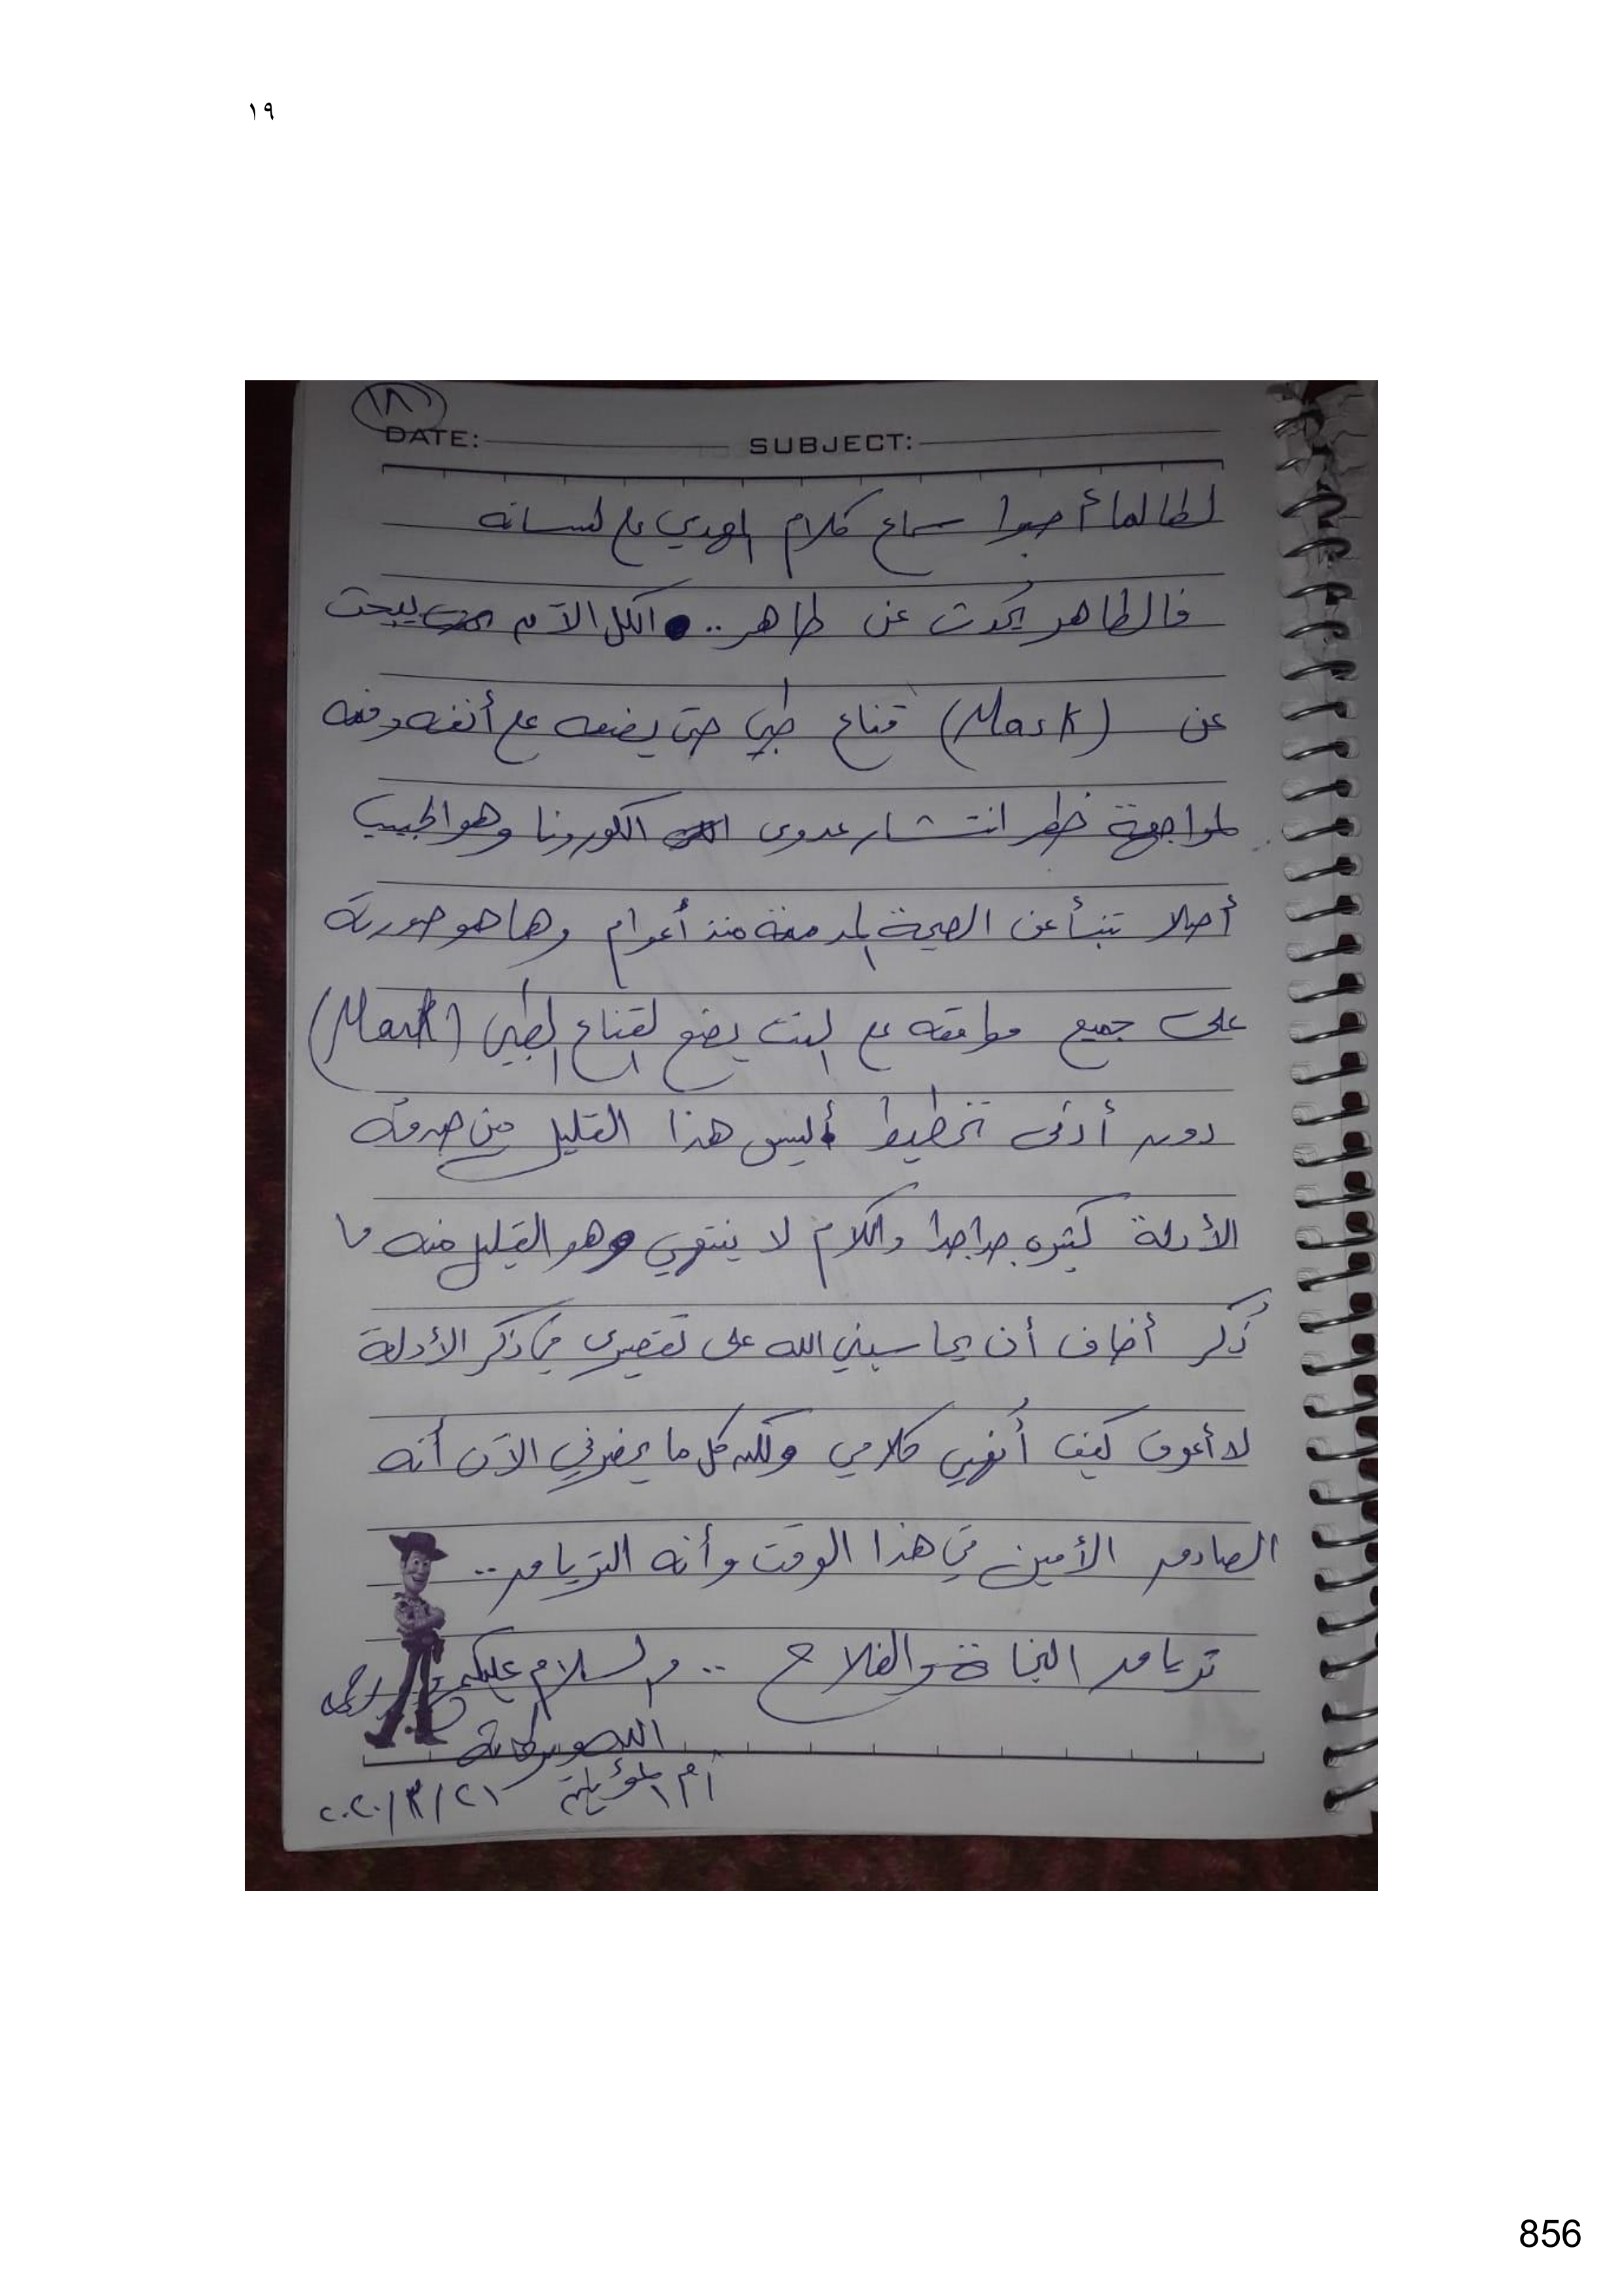 ١٩
١٨
DATE: SUBJECT:
لطالما أحبوا سماع كلام المهدي على لسانه
فالطاهر يحدث عن طاهر .. الكل الآن يبحث
عن (Mask) قناع طبي حتى يضعه على أنفه وفمه
لمواجهة خطر انتشار عدوى الكورونا وهو الحبيب
أصلا تنبأ عن الصيحة المدمرة منذ أعوام وها هو صورته
على جميع مواقعه على النت يضع القناع الطبي (Mask)
دون أدنى تخطيط أليس هذا القليل من صدقه
الأدلة كثيره جدا جدا والكلام لا ينتهي وهو القليل منه ما
ذُكر أخاف أن يحاسبني الله على تقصيري في ذكر الأدلة
لا أعرف كيف أُنهي كلامي ولكن كل ما يحضرني الآن أنه
الصادق الأمين في هذا الوقت وأنه الترياق ..
ترياق النجاة والفلاح .. والسلام عليكم ورحمة
الله وبركاته
أم المؤيد
٢٠٢٠/٣/٢١
856